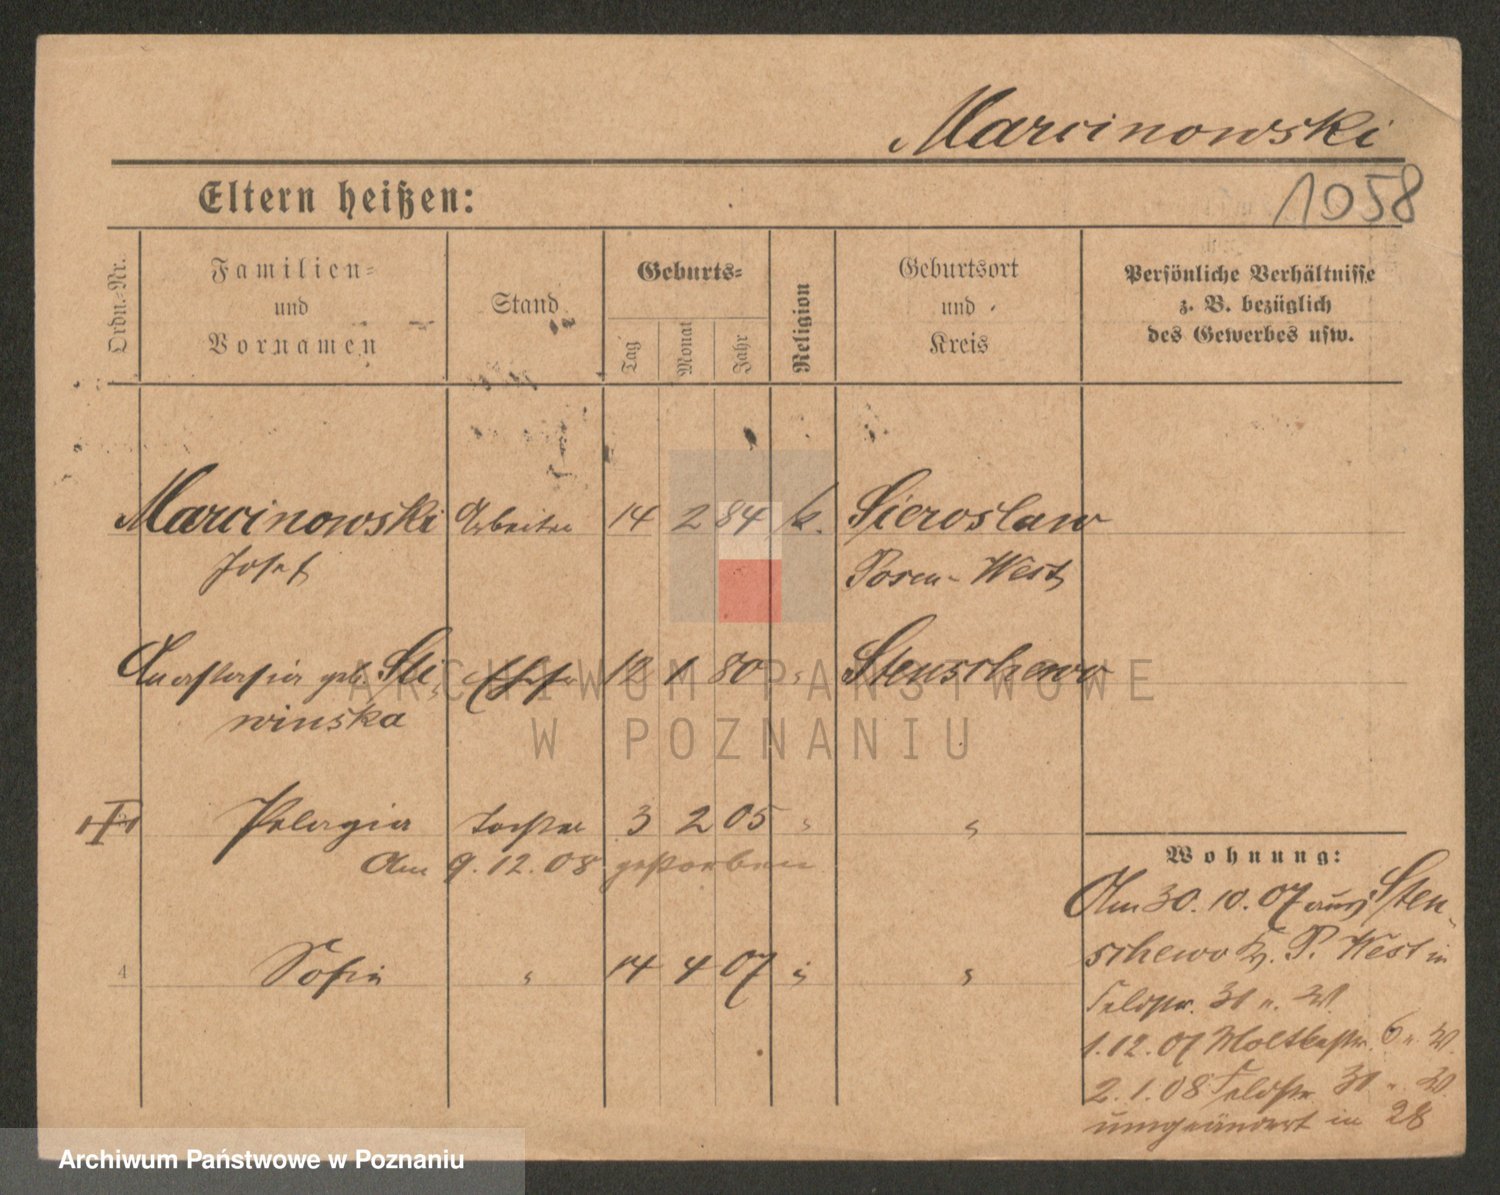 Marcinowski
Eltern heißen:
1058
Ordn.-Nr.
Familien-
und
Vornamen
Stand
Geburts-
Tag
Monat
Jahr
Religion
Geburtsort
und
Kreis
Persönliche Verhältnisse
z. B. bezüglich
des Gewerbes usw.
Marcinowski Arbeiter 14 2 84 k. Sieroslaw
Josef Posen-West
Anastasia geb. Sli- Ehefr 12 1 80 " Stenschewo
winska
Pelagia Tochter 3 2 05 " "
Am 9.12.08 gestorben
4 Sofia " 14 4 07 " "
Wohnung:
Am 30.10.07 aus Sten-
schewo Kr. P. West in
Feldstr. 31 n. W
1.12.07 Moltkestr. 6 n. W.
2.1.08 Feldstr. 31 " W
umgeändert in 28
ARCHIWUM PAŃSTWOWE
W POZNANIU
Archiwum Państwowe w Poznaniu